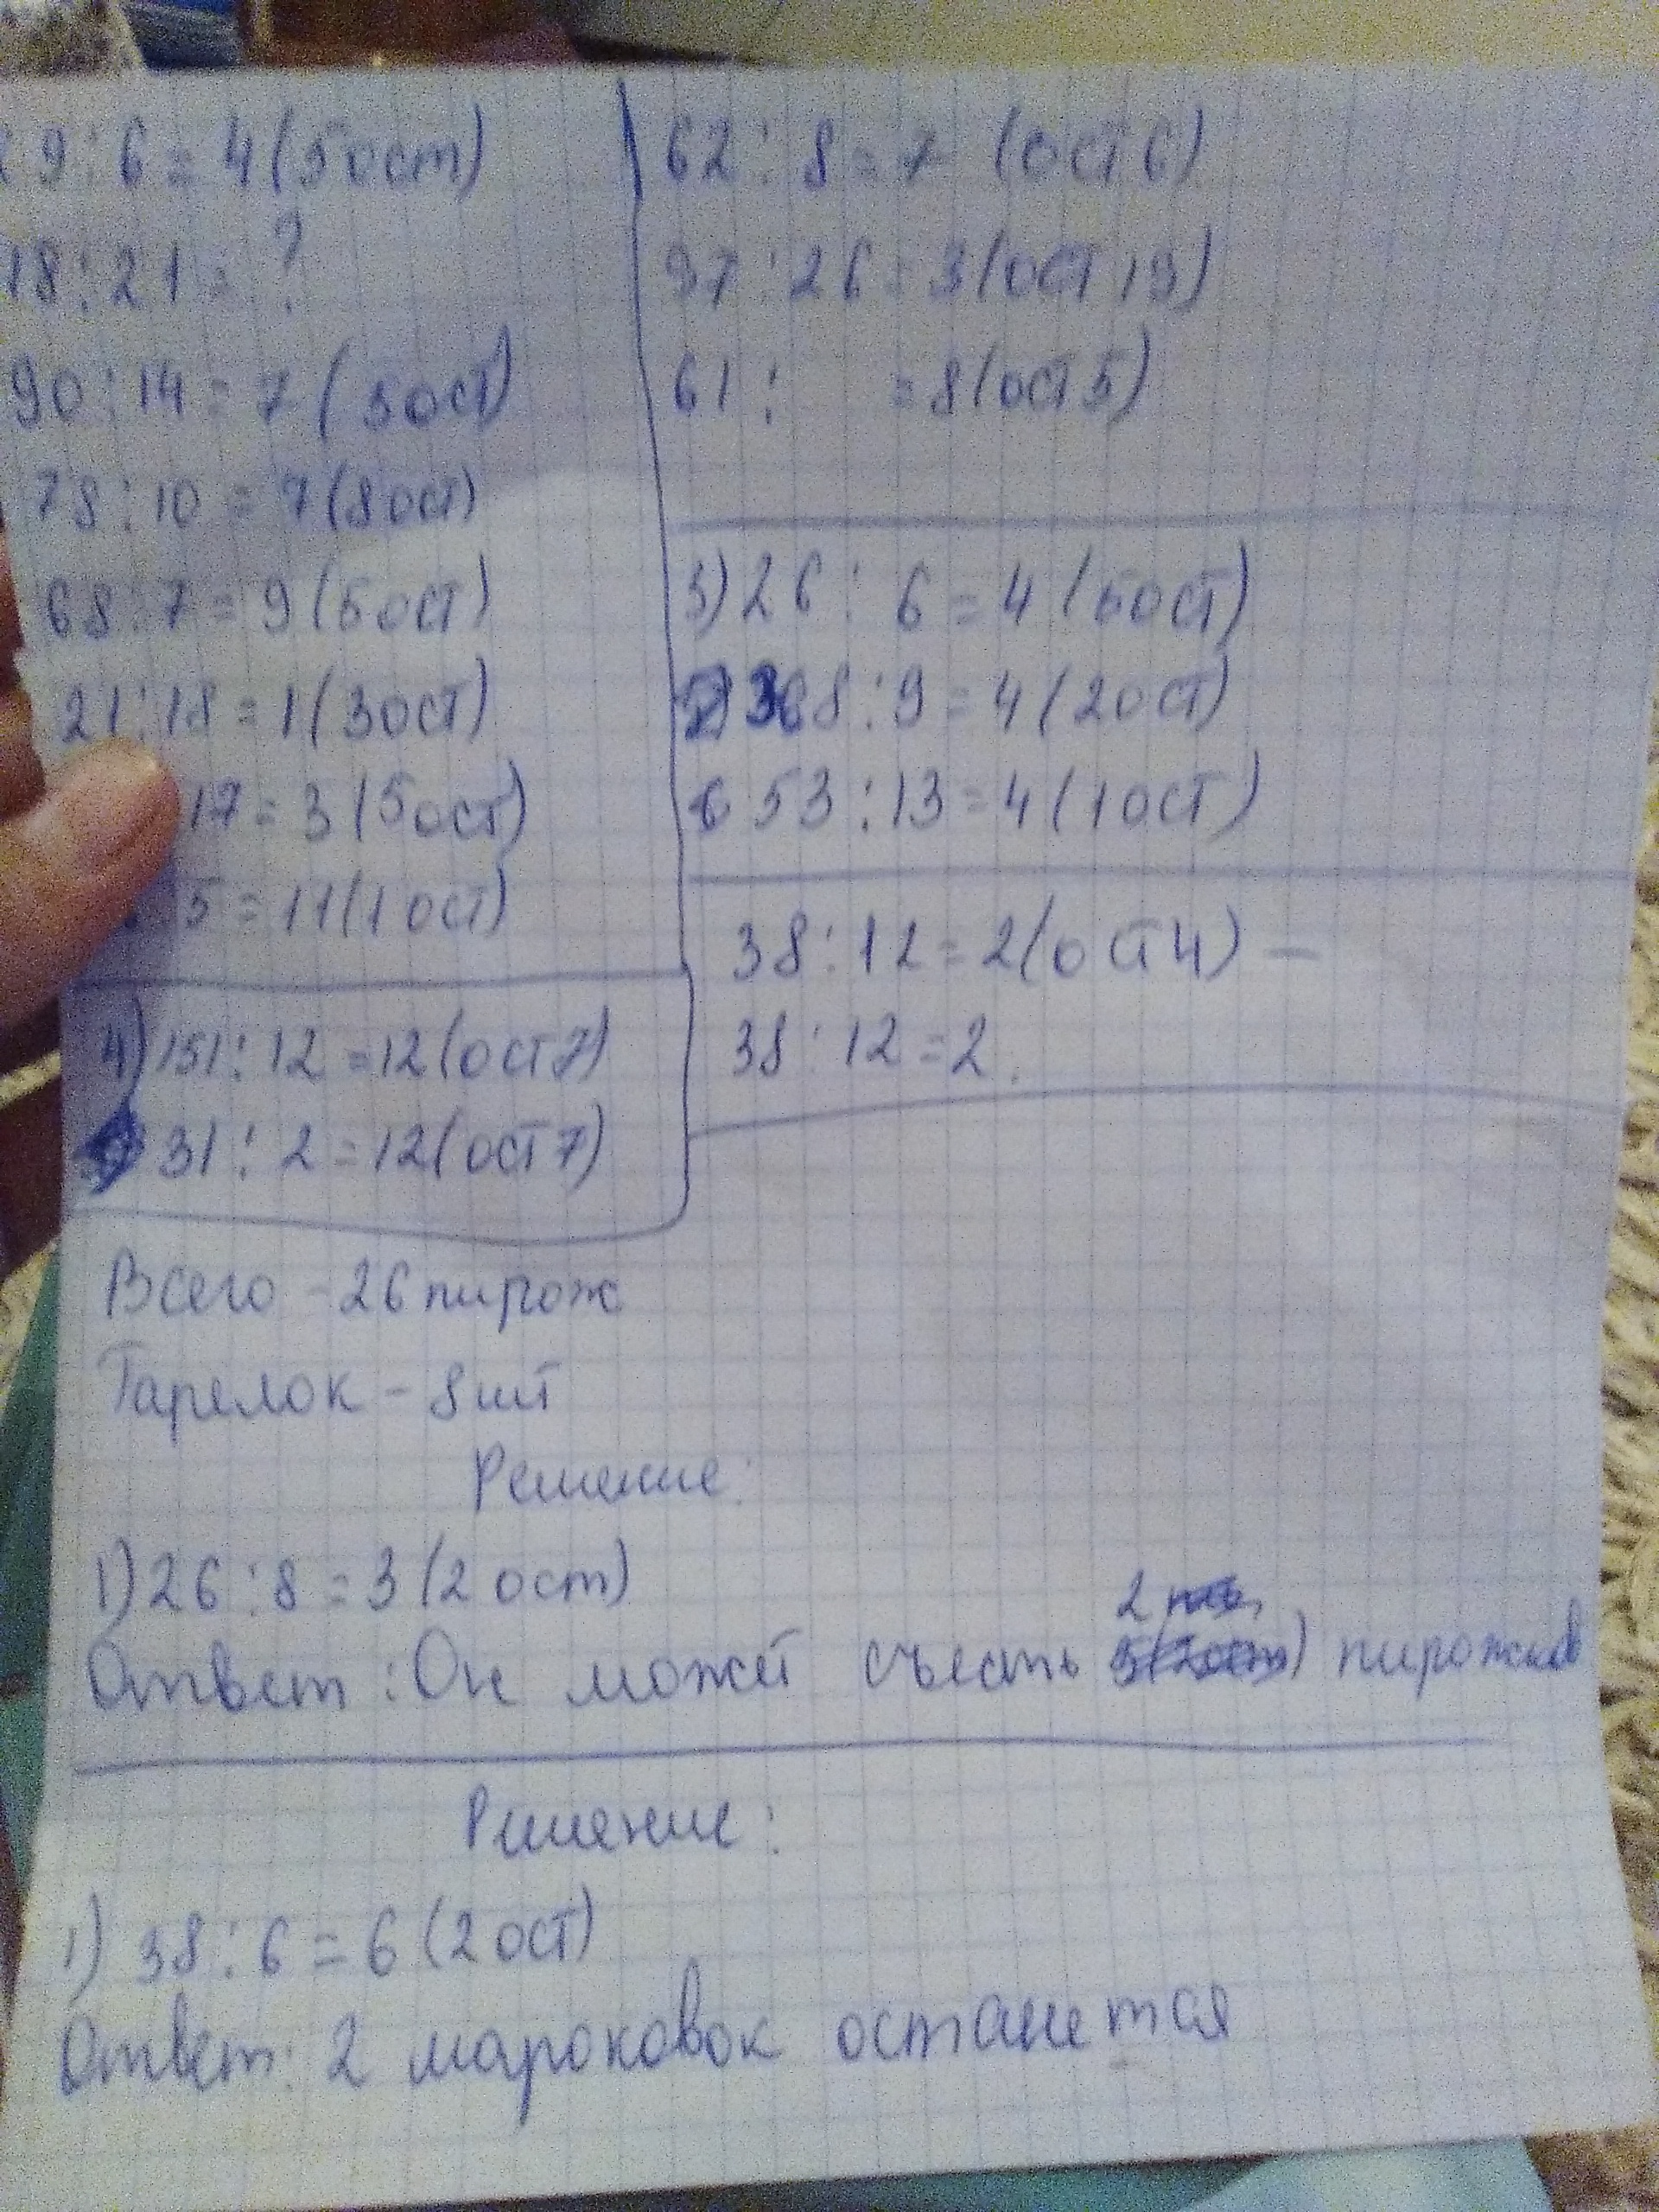 29:6=4(5ост)
18:21=?
90:14=7(5ост)
78:10=7(8ост)
68:7=9(5ост)
21:18=1(3ост)
17=3(5ост)
5=11(1ост)
4)151:12=12(ост7)
31:2=12(ост7)
62:8=7 (ост6)
97:26=3(ост19)
61: =8(ост5)
3)26:6=4(5ост)
38:9=4(2ост)
53:13=4(1ост)
38:12=2(ост4) –
38:12=2.
Всего - 26 пирож
Тарелок - 8шт
Решение:
1)26:8=3(2ост)
Ответ: Он может съесть 2 пирожков
Решение:
1) 38:6=6(2ост)
Ответ: 2 мароковок останется